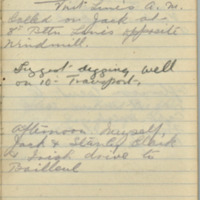 Front Lines A.M.
Called on Jack at
8th Bttn Lines opposite
Windmill.
Suggest digging well
on 10th Transport.
Afternoon myself,
Jack & Stanley Clark
& drive to
Bailleul